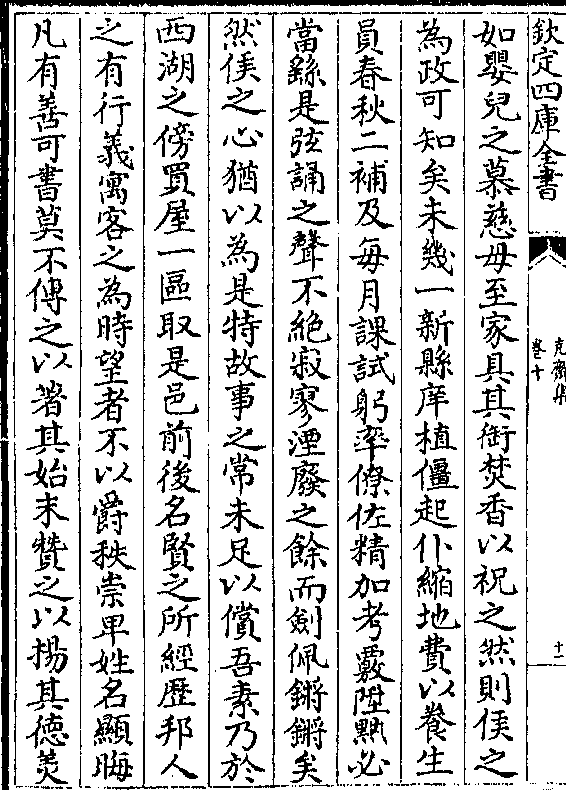 欽定四庫全書
克齋集
卷十
十一
如嬰兒之慕慈母至家具其銜焚香以祝之然則侯之
為政可知矣未幾一新縣庠植僵起仆縮地費以養生
員春秋二補及每月課試躬率僚佐精加考覈陞黜必
當繇是弦誦之聲不絶寂寥湮廢之餘而劍佩鏘鏘矣
然侯之心猶以為是特故事之常未足以償吾素乃於
西湖之傍買屋一區取是邑前後名賢之所經歴邦人
之有行義寓客之為時望者不以爵秩崇卑姓名顯晦
凡有善可書莫不傳之以著其始末贊之以揚其德羙